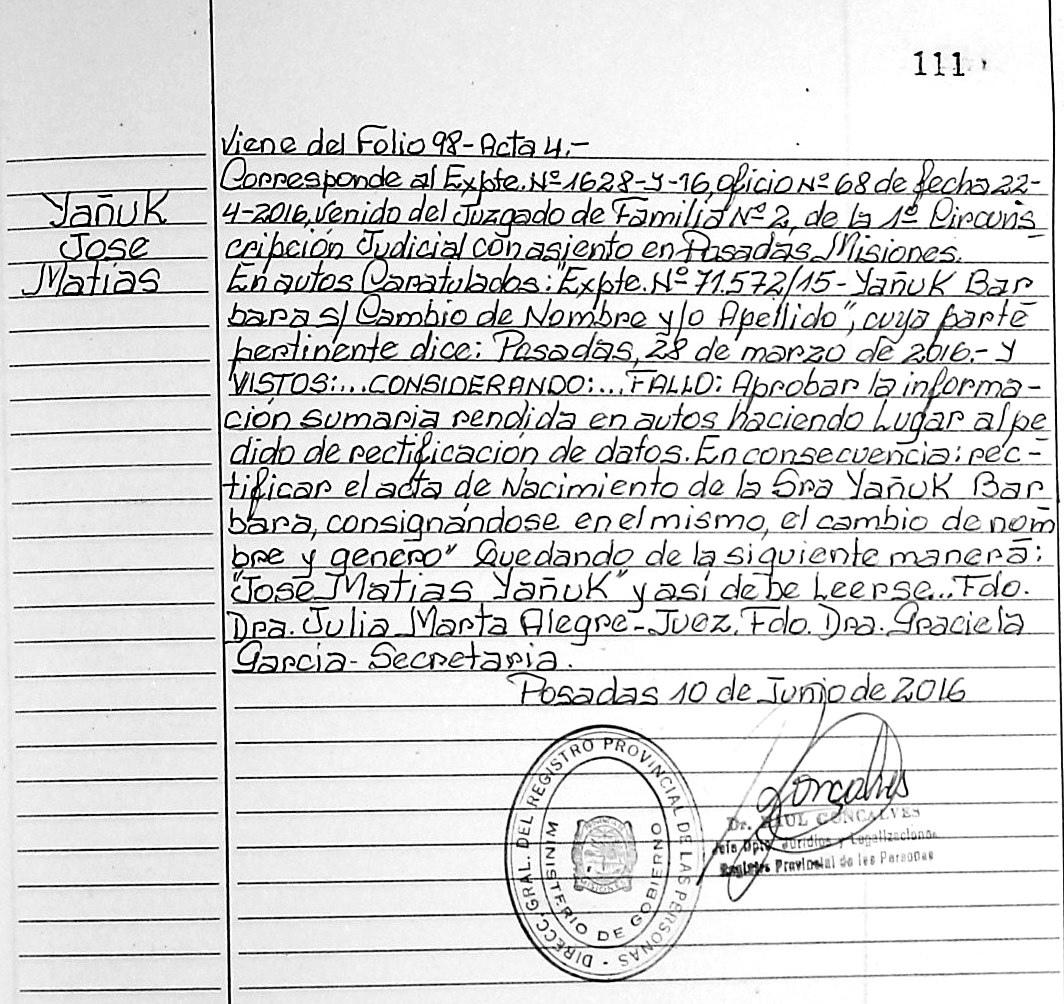 111
Viene del Folio 98- Acta 4.-
Corresponde al Expte. Nº 1628-Y-16, Oficio Nº 68 de fecha 22-
4-2016, Venido del Juzgado de Familia Nº 2, de la 1º Circuns
cripción Judicial con asiento en Posadas, Misiones.
En autos Caratulados: "Expte. Nº 71.572/15- Yañuk Bar
bara s/ Cambio de Nombre y/o Apellido", cuya parte
pertinente dice: Posadas, 28 de marzo de 2016.- Y
VISTOS:...CONSIDERANDO:...FALLO: Aprobar la informa-
ción sumaria rendida en autos haciendo Lugar al pe
dido de rectificación de datos. En consecuencia: rec-
tificar el acta de Nacimiento de la Sra Yañuk Bar
bara, consignándose en el mismo, el cambio de nom
bre y genero" Quedando de la siguiente manera:
"José Matias Yañuk" y así debe Leerse... Fdo.
Dra. Julia Marta Alegre- Juez. Fdo. Dra. Graciela
Garcia- Secretaria.
Posadas 10 de Junio de 2016
Yañuk
Jose
Matías
DIRECC. GRAL. DEL REGISTRO PROVINCIAL DE LAS PERSONAS -
MINISTERIO DE GOBIERNO
MISIONES
Goncalves
Dr. RAUL GONCALVES
Jefe Dpto. Jurídico y Legalizaciones
Registro Provincial de las Personas